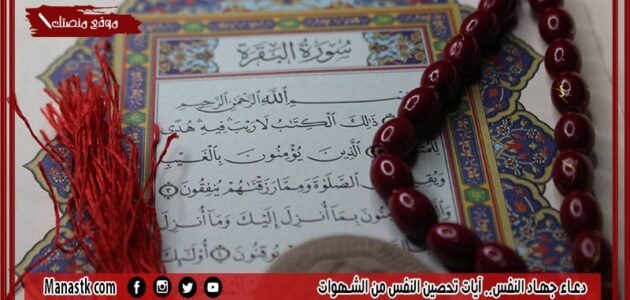 موقع منصتك
سُورَةُ البَقَرَةِ
اللَّهِ الرَّحْمَٰنِ الرَّحِيمِ
ذَٰلِكَ الْكِتَٰبُ لَا رَيْبَ فِيهِ هُدًى
الَّذِينَ يُؤْمِنُونَ بِالْغَيْبِ
الصَّلَوٰةَ وَمِمَّا رَزَقْنَٰهُمْ يُنفِقُونَ ٣
بِمَا أُنزِلَ إِلَيْكَ وَمَا أُنزِلَ
يُوقِنُونَ ٤ أُوْلَٰئِكَ
Manastk com
دعاء جهاد النفس.. آيات تحصين النفس من الشهوات